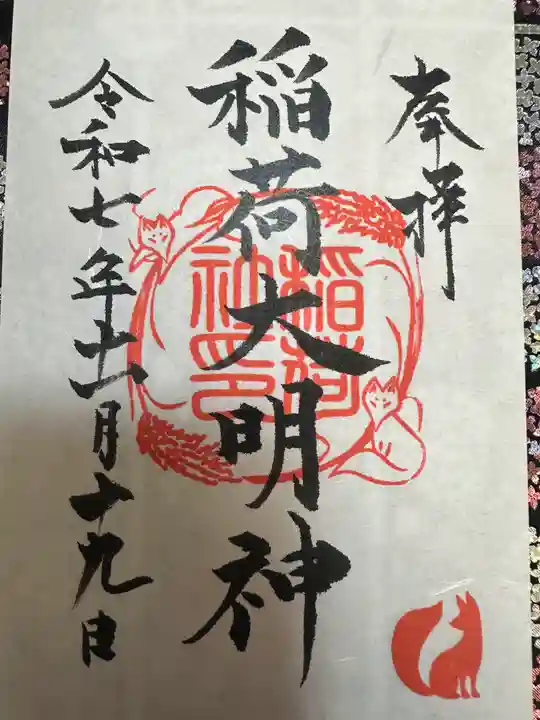 奉拝
稲荷大明神
稲荷
社印
令和七年十一月十九日